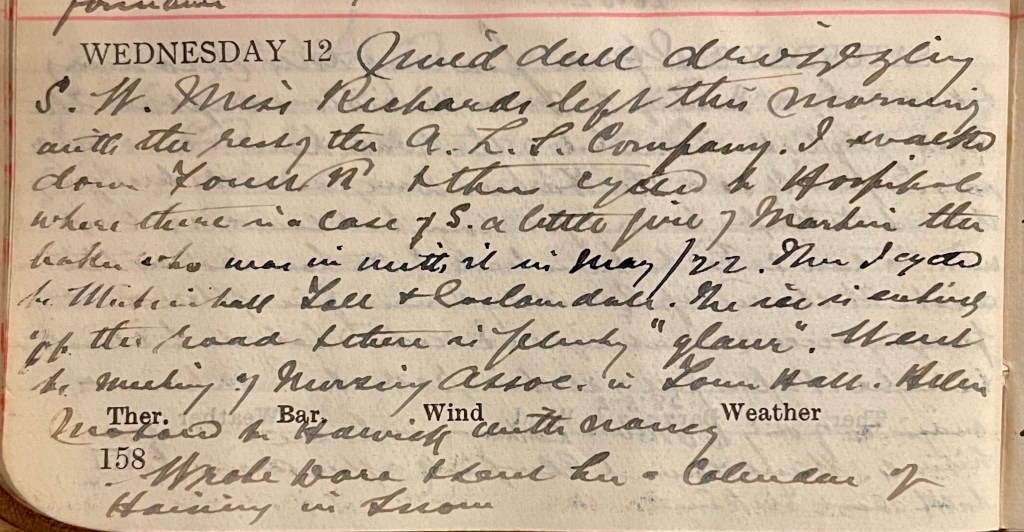 WEDNESDAY 12 Mild dull drizzling
S. W. Miss Richards left this morning
with the rest of the A. L. S. Company. I walked
down Town & then cycled to Hospital
where there is a case of S. a little girl of Martin the
baker who was in with it in May /22. Then I cycled
to Toll & . The ice is entirely
off the road & there is plenty "glaur". Went
to meeting of Nursing Assoc. in Town Hall. Helen
Ther. Bar. Wind Weather
to Hawick with Nancy
158
Wrote Dora & sent her a Calendar of
Haining in Snow